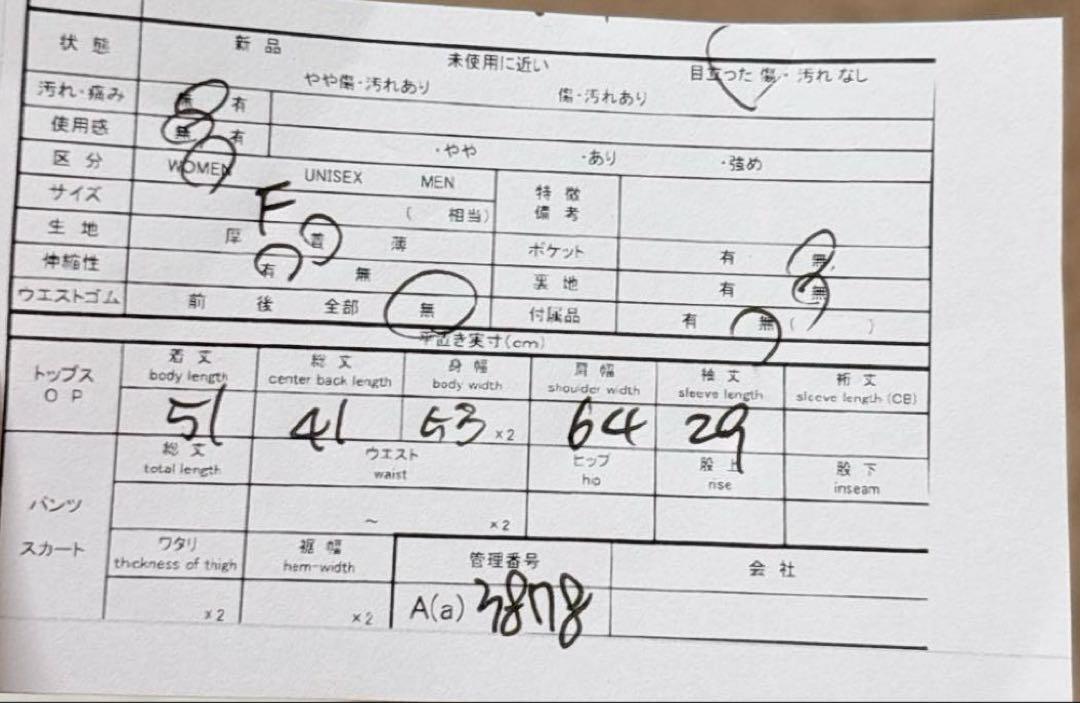 状態 新品 未使用に近い 目立った傷・汚れなし
やや傷・汚れあり 傷・汚れあり
汚れ・痛み 無 有
使用感 無 有 ・やや ・あり ・強め
区分 WOMEN UNISEX MEN 特徴 備考
サイズ F ( 相当)
生地 厚 普 薄 ポケット 有 無
伸縮性 有 無 裏地 有 無
ウエストゴム 前 後 全部 無 付属品 有 無 ( )
平置き実寸(cm)
トップス OP 着丈 総丈 身幅 肩幅 袖丈 裄丈
body length center back length body width shoulder width sleeve length sleeve length (CB)
51 41 53 ×2 64 29
総丈 ウエスト ヒップ 股上 股下
total length waist hip rise inseam
パンツ ~ ×2
スカート ワタリ 裾幅 管理番号 会社
thickness of thigh hem-width
×2 ×2 A(a) 3878